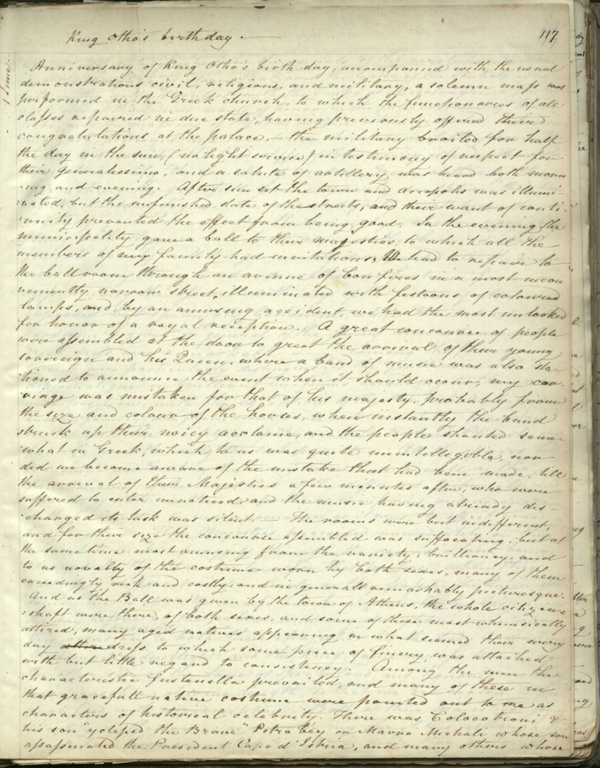 King Otho's birthday. —
117
Anniversary of King Otho's birth day, accompanied with the usual
demonstrations civil, religious, and military, a solemn mass was
performed in the Greek church, to which the functionaries of all
classes repaired in due state, having previously offered their
congratulations at the palace, — the military broiled for half
the day in the sun, (no light service) in testimony of respect for
their generalissimo, and a salute of artillery was heard both morn
-ing and evening. After sun set the town and acropolis was illumi
-nated, but the unfinished state of the streets, and their want of conti-
-nuity prevented the effect from being good. In the evening the
municipality gave a ball to their majesties, to which all the
members of my family had invitations. We had to repair to
the ball room through an avenue of bonfires in a most incon
veniently narrow street, illuminated with festoons of coloured
lamps, and by an amusing accident, we had the most unlooked
for honor of a royal reception. A great concourse of people
were assembled at the door to greet the arrival of their young
sovereign and his Queen, where a band of music was also sta-
-tioned to announce the event when it should occur, my car-
-riage was mistaken for that of his majesty, probably from
the size and colour of the horses, when instantly the band
struck up their noisy acclaim, and the people shouted some-
what in Greek, which to us was quite unintelligible, nor
did we become aware of the mistake that had been made, till
the arrival of their Majesties a few minutes after, who were
suffered to enter unnoticed, and the music having already dis-
-charged its task was silent. — The rooms were but indifferent,
and for their size the concourse assembled was suffocating, but at
the same time most amusing from the variety, brilliancy, and
to us novelty of the costume worn by both sexes, many of them
exceedingly rich and costly, and in general remarkably picturesque.
And as the Ball was given by the town of Athens, the whole citizen-
-shaft were there, of both sexes, and some of those most whimsically
attired, many aged natives appearing in what seemed their every
day dress to which some piece of finery was attached
with but little regard to consistency. Among the men the
characteristic fustanella prevailed, and many of these in
that graceful native costume were pointed out to me as
characters of historical celebrity. There was Colocotroni &
his son "ycleped the Brave" Petro bey or Mavro Michali whose son
assassinated the President Capo d'Istria, and many others whose